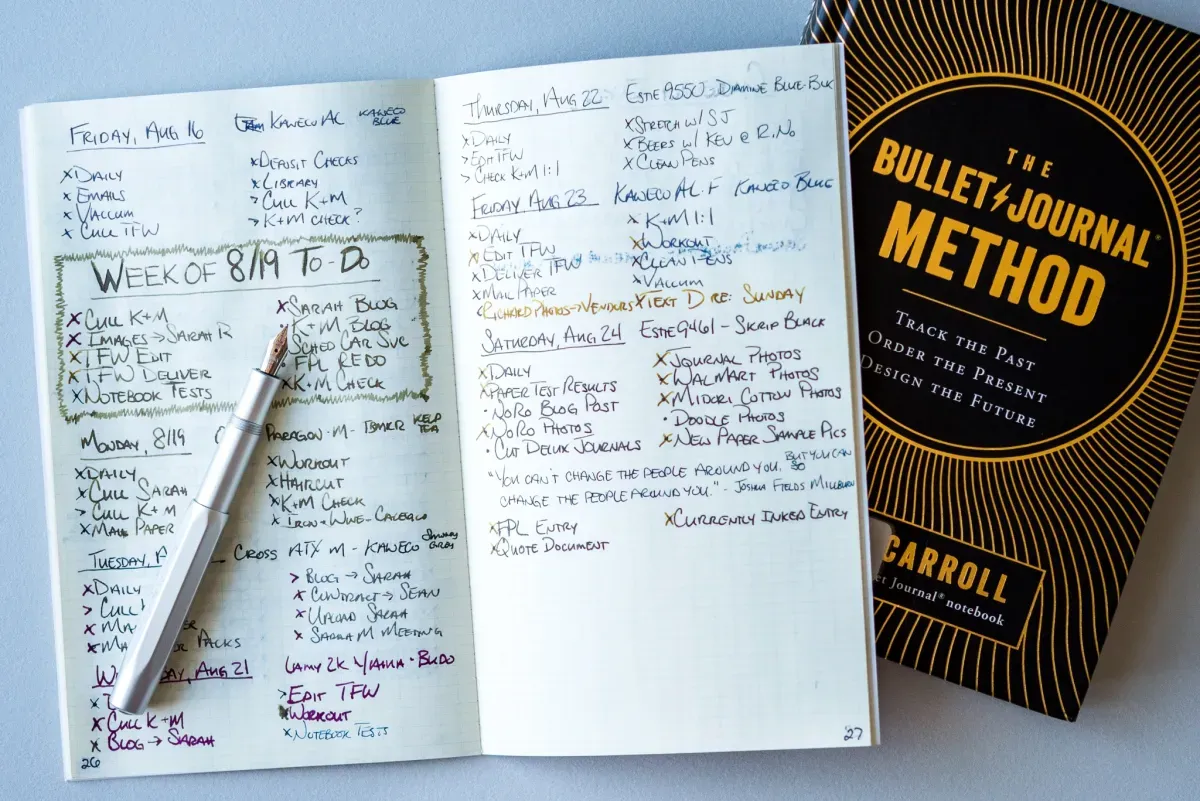 Friday, Aug 16
Kaweco AL
Kaweco
Blue
x Daily
x Emails
x Vaccum
x Cull TFW
x Deposit Checks
x Library
> Cull K+M
> K+M Check?
Week of 8/19 To-Do
x Cull K+M
x Images → Sarah R
x TFW Edit
x TFW Deliver
x Notebook Tests
x Sarah Blog
K+M Blog
Sched Car Svc
FPL Redo
x K+M Check
Monday, 8/19
Paragon - M -
Kelp
Tea
x Daily
x Cull Sarah
> Cull K+M
x Mail Paper
x Workout
x Haircut
x K+M Check
x Iron + Wine - Calexico
Tuesday, A
Cross ATX M - Kaweco
Smokey
Grey
x Daily
> Cull
x Ma
x Ma Packs
> Blog → Sarah
x Contract → Sean
x Upload Sarah
x Sarah M Meeting
W day, Aug 21
Lamy 2K
x
x Cull K+M
x Blog → Sarah
> Edit TFW
x Workout
x Notebook Tests
26
Thursday, Aug 22
Estie 9550 Diamine Blue-Blk
x Daily
> Edit TFW
> Check K+M 1:1
x Stretch w/ SJ
x Beers w/ Kev @ R.No
x Clean Pens
Friday Aug 23
Kaweco AL - F Kaweco Blue
x Daily
x Edit TFW
x Deliver TFW
x Mail Paper
x K+M 1:1
x Workout
x Clean Pens
x Vaccum
Richard Photos → Vendors x Text D re: Sunday
Saturday, Aug 24
Estie 9461 - Skrip Black
x Daily
x Paper Test Results
• NoRo Blog Post
x NoRo Photos
• Cut Delux Journals
x Journal Photos
x Walmart Photos
x Midori Cotton Photos
• Doodle Photos
x New Paper Sample Pics
"You can't change the people around you, but you can
so
change the people around you." - Joshua Fields Millburn
x FPL Entry
x Quote Document
x Currently Inked Entry
27
THE
BULLET JOURNAL®
METHOD
TRACK THE PAST
ORDER THE PRESENT
DESIGN THE FUTURE
CARROLL
et Journal® notebook